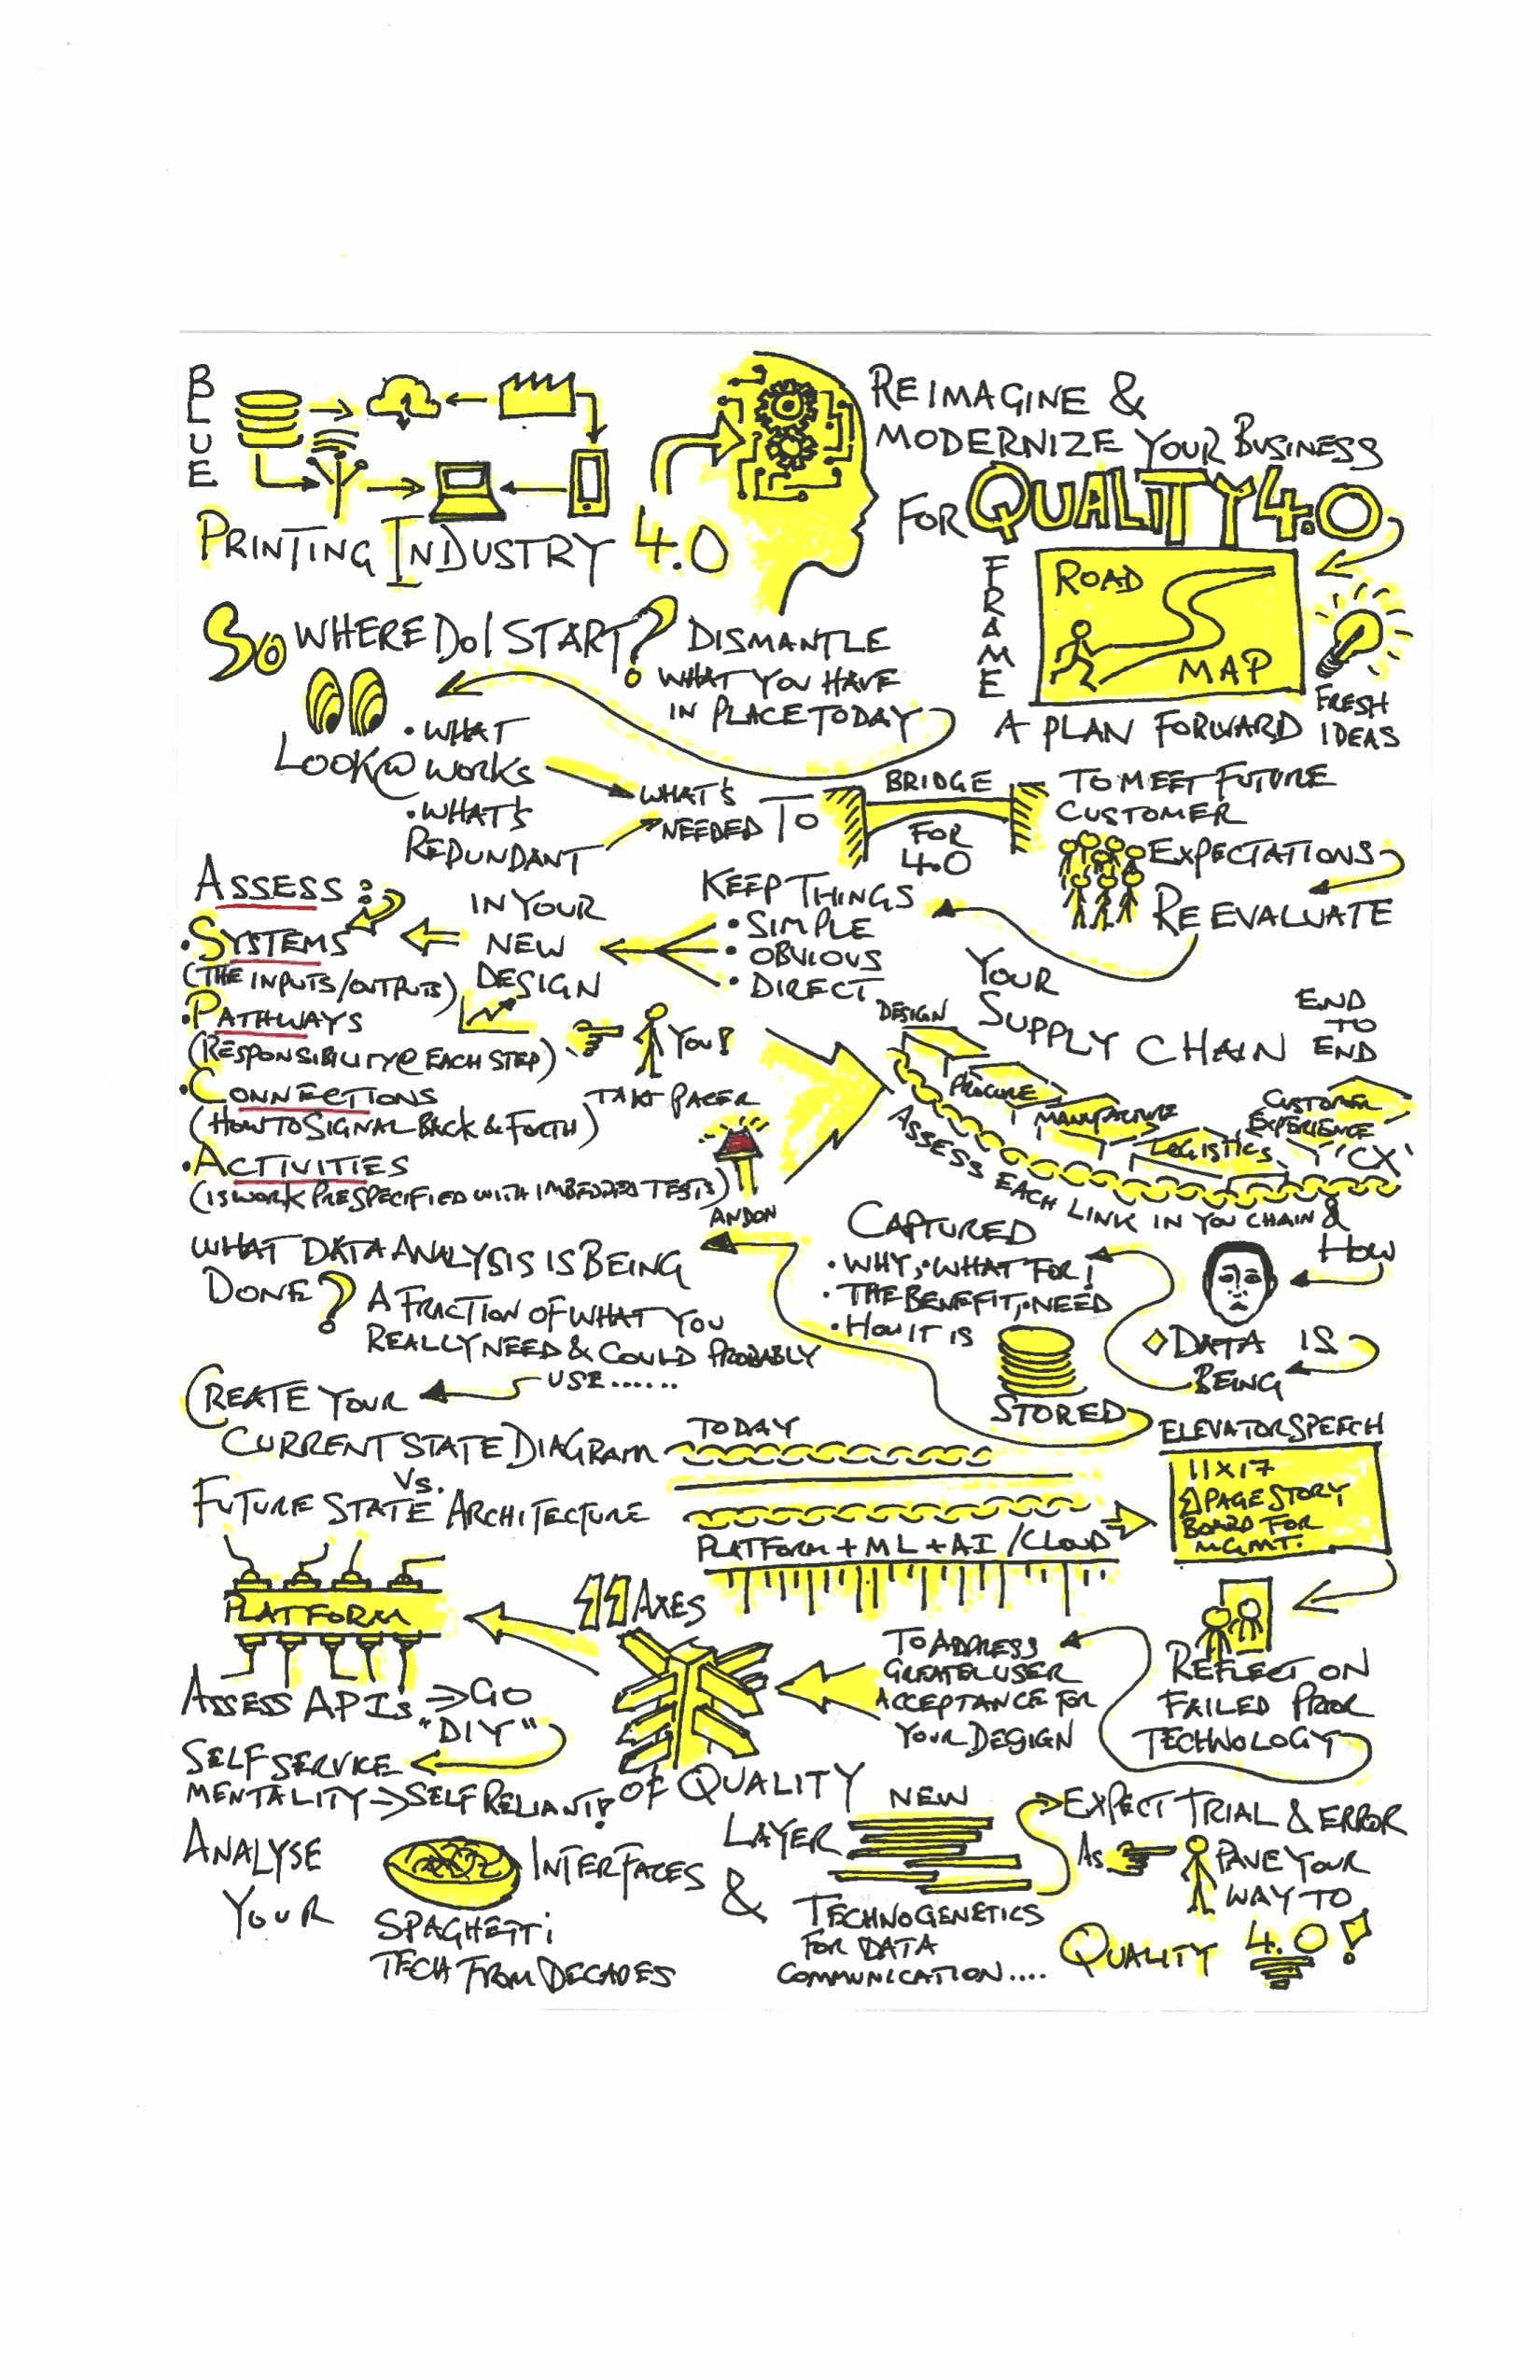 BLUE
PRINTING INDUSTRY 4.0
REIMAGINE &
MODERNIZE YOUR BUSINESS
FOR QUALITY 4.0
FRAME
ROAD
MAP
A PLAN FORWARD
FRESH
IDEAS
SO WHERE DO I START?
DISMANTLE
WHAT YOU HAVE
IN PLACE TODAY
LOOK@
• WHAT
WORKS
• WHAT'S
REDUNDANT
WHAT'S
NEEDED
TO
BRIDGE
FOR
4.0
TO MEET FUTURE
CUSTOMER
EXPECTATIONS
REEVALUATE
YOUR
SUPPLY CHAIN
END
TO
END
KEEP THINGS
• SIMPLE
• OBVIOUS
• DIRECT
IN YOUR
NEW
DESIGN
ASSESS:
• SYSTEMS
(THE INPUTS/OUTPUTS)
• PATHWAYS
(RESPONSIBILITY@ EACH STEP)
YOU!
• CONNECTIONS
(HOW TO SIGNAL BACK & FORTH)
TAKT PACER
• ACTIVITIES
(IS WORK PRESPECIFIED WITH IMBEDDED TESTS)
ANDON
DESIGN
PROCURE
MANUFACTURE
LOGISTICS
CUSTOMER
EXPERIENCE
'CX'
ASSESS EACH LINK IN YOU CHAIN &
HOW
DATA IS
BEING
CAPTURED
• WHY, • WHAT FOR!
• THE BENEFIT, • NEED
• HOW IT IS
STORED
WHAT DATA ANALYSIS IS BEING
DONE?
A FRACTION OF WHAT YOU
REALLY NEED & COULD PROBABLY
USE......
CREATE YOUR
CURRENT STATE DIAGRAM
TODAY
VS.
FUTURE STATE ARCHITECTURE
PLATFORM + ML + AI / CLOUD
ELEVATOR SPEECH
11X17
PAGE STORY
BOARD FOR
MGMT.
REFLECT ON
FAILED PRIOR
TECHNOLOGY
TO ADDRESS
GREATER USER
ACCEPTANCE FOR
YOUR DESIGN
11 AXES
OF QUALITY
PLATFORM
ASSESS APIs => GO
"DIY"
SELF SERVICE
MENTALITY => SELF RELIANT!
ANALYSE
YOUR
SPAGHETTI
TECH FROM DECADES
INTERFACES
&
LAYER
NEW
TECHNOGENETICS
FOR DATA
COMMUNICATION....
EXPECT TRIAL & ERROR
AS
PAVE YOUR
WAY TO
QUALITY 4.0!